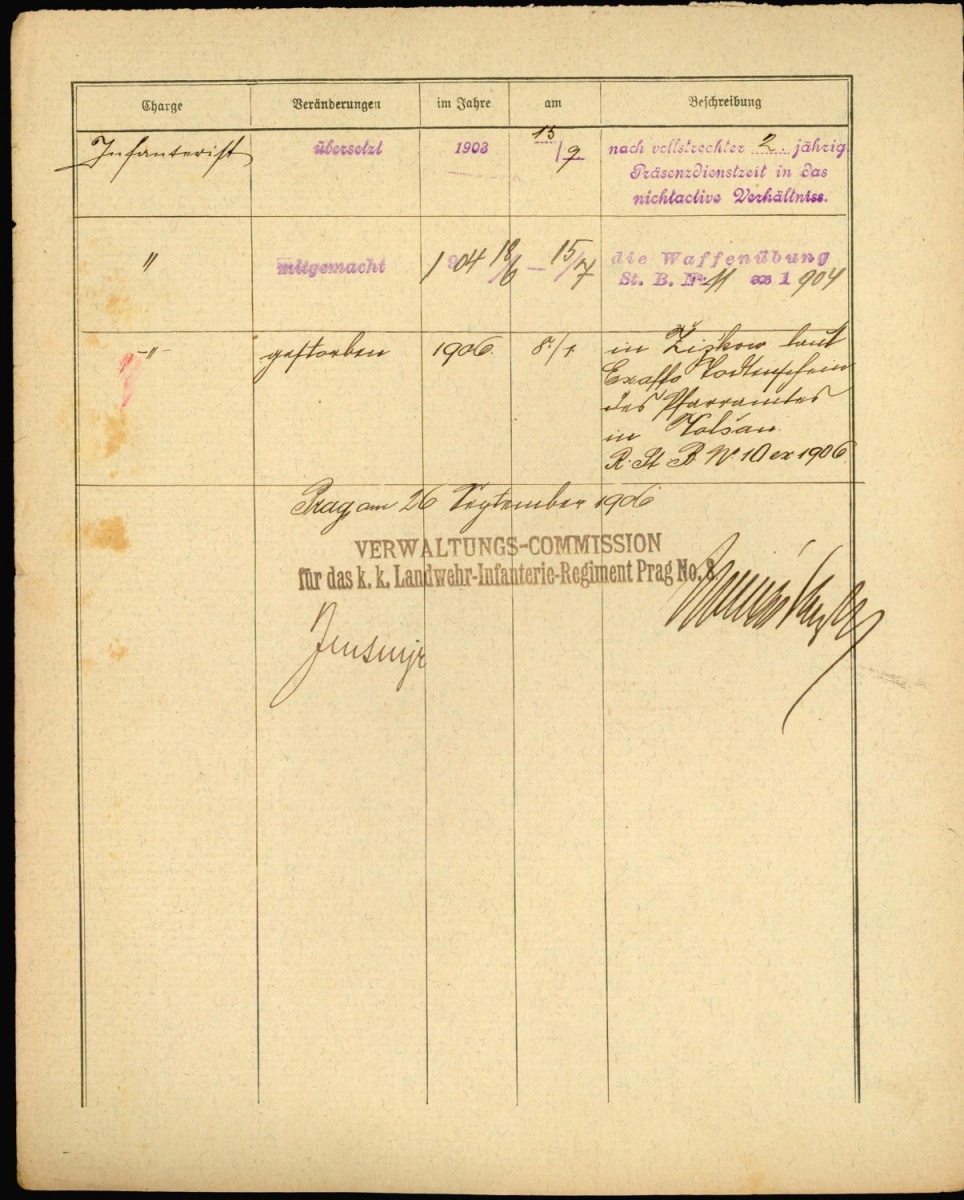 Charge Veränderungen im Jahre am Beschreibung
Infanterist übersetzt 1903 15/9 nach vollstreckter 2 jährig
Präsenzdienstzeit in das
nichtactive Verhältniss.
" mitgemacht 1904 18/6 — 15/7 die Waffenübung
St. B. № 11 ex 1904
-"- gestorben 1906. 8./1. in Žižkow laut
Exoffo Todtenschein
des Pfarramtes
in Wolšan.
R. St B № 10 ex 1906
Prag, am 26 September 1906
VERWALTUNGS-COMMISSION
für das k. k. Landwehr-Infanterie-Regiment Prag No. 8